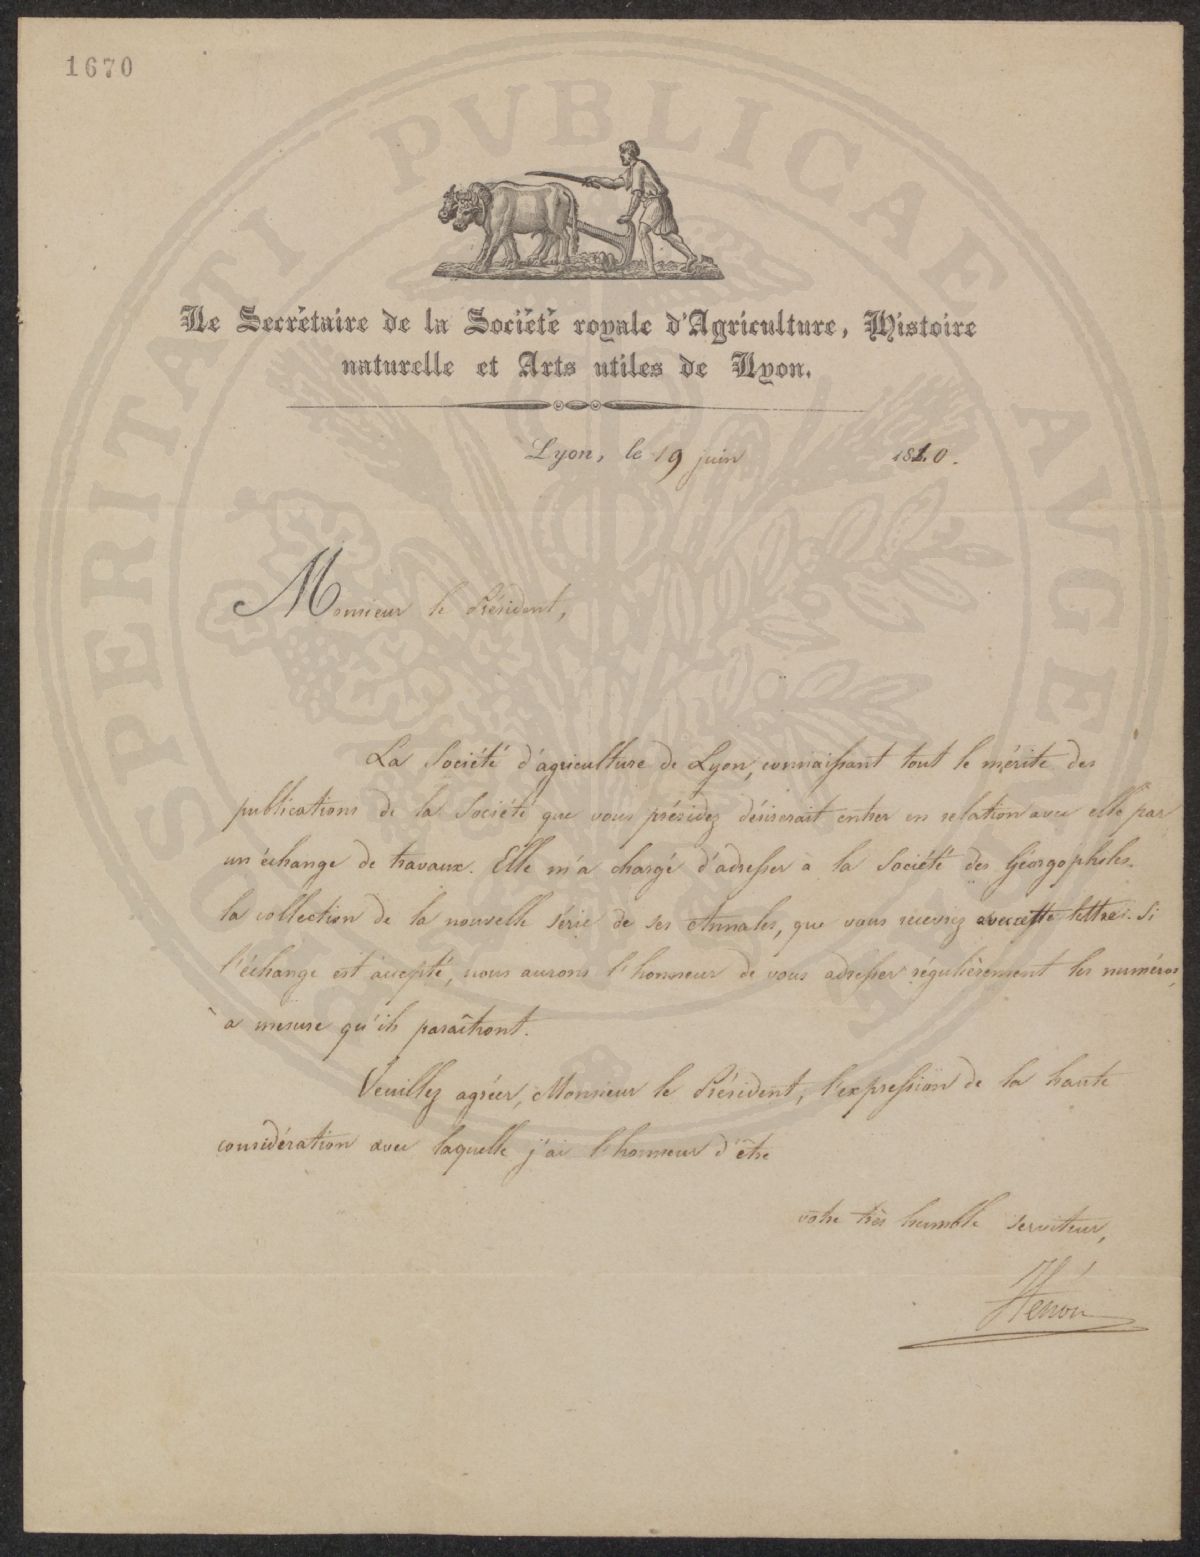 1670
PROSPERITATI PVBLICAE AVGENDAE
Le Secrétaire de la Société royale d'Agriculture, Histoire
naturelle et Arts utiles de Lyon.
Lyon, le 19 juin 18 0.
Monsieur le Président,
La Société d'agriculture de Lyon, connaissant tout le mérite des
publications de la Société que vous présidez désirerait entrer en relation avec elle par
un échange de travaux. Elle m'a chargé d'adresser à la Société des Géorgophiles
la collection de la nouvelle série de ses Annales, que vous recevrez avec cette lettre. Si
l'échange est accepté, nous aurons l'honneur de vous adresser régulièrement les numéros,
à mesure qu'ils paraîtront.
Veuillez agréer, Monsieur le Président, l'expression de la haute
considération avec laquelle j'ai l'honneur d'être
votre très humble serviteur,
Hénon